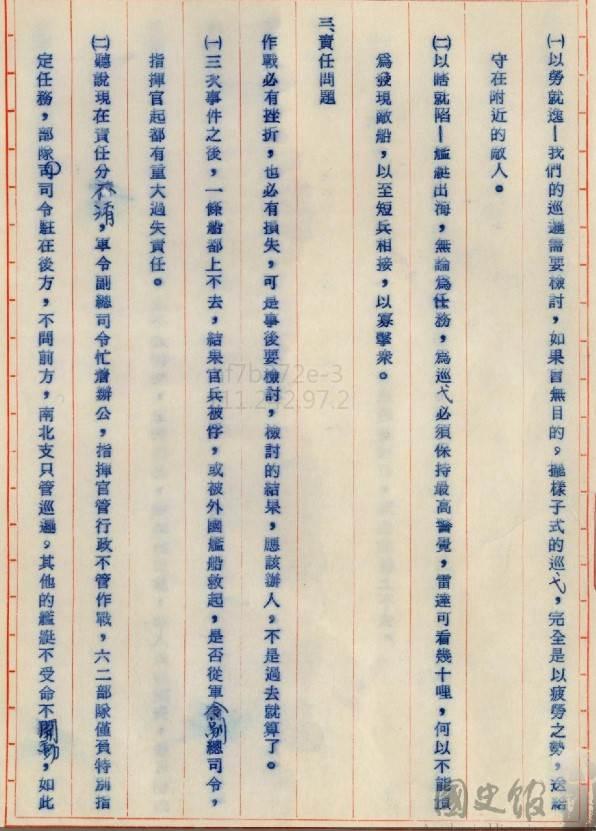 ㈠以勞就逸—我們的巡邏需要檢討，如果盲無目的，擺樣子式的巡弋，完全是以疲勞之勢，送給
守在附近的敵人。
㈡以暗就陷—艦艇出海，無論為任務，為巡弋必須保持最高警覺，雷達可看幾十哩，何以不能預
為發現敵船，以至短兵相接，以寡擊眾。
三、責任問題
作戰必有挫折，也必有損失，可是事後要檢討，檢討的結果，應該辦人，不是過去就算了。
㈠三次事件之後，一條船都上不去，結果官兵被俘，或被外國艦船救起，是否從軍令副總司令，
指揮官起都有重大過失責任。
㈡聽說現在責任分不清，軍令副總司令忙着辦公，指揮官管行政不管作戰，六二部隊僅負特別指
定任務，部隊司令駐在後方，不問前方，南北支只管巡邏，其他的艦艇不受命不開動，如此
國史館